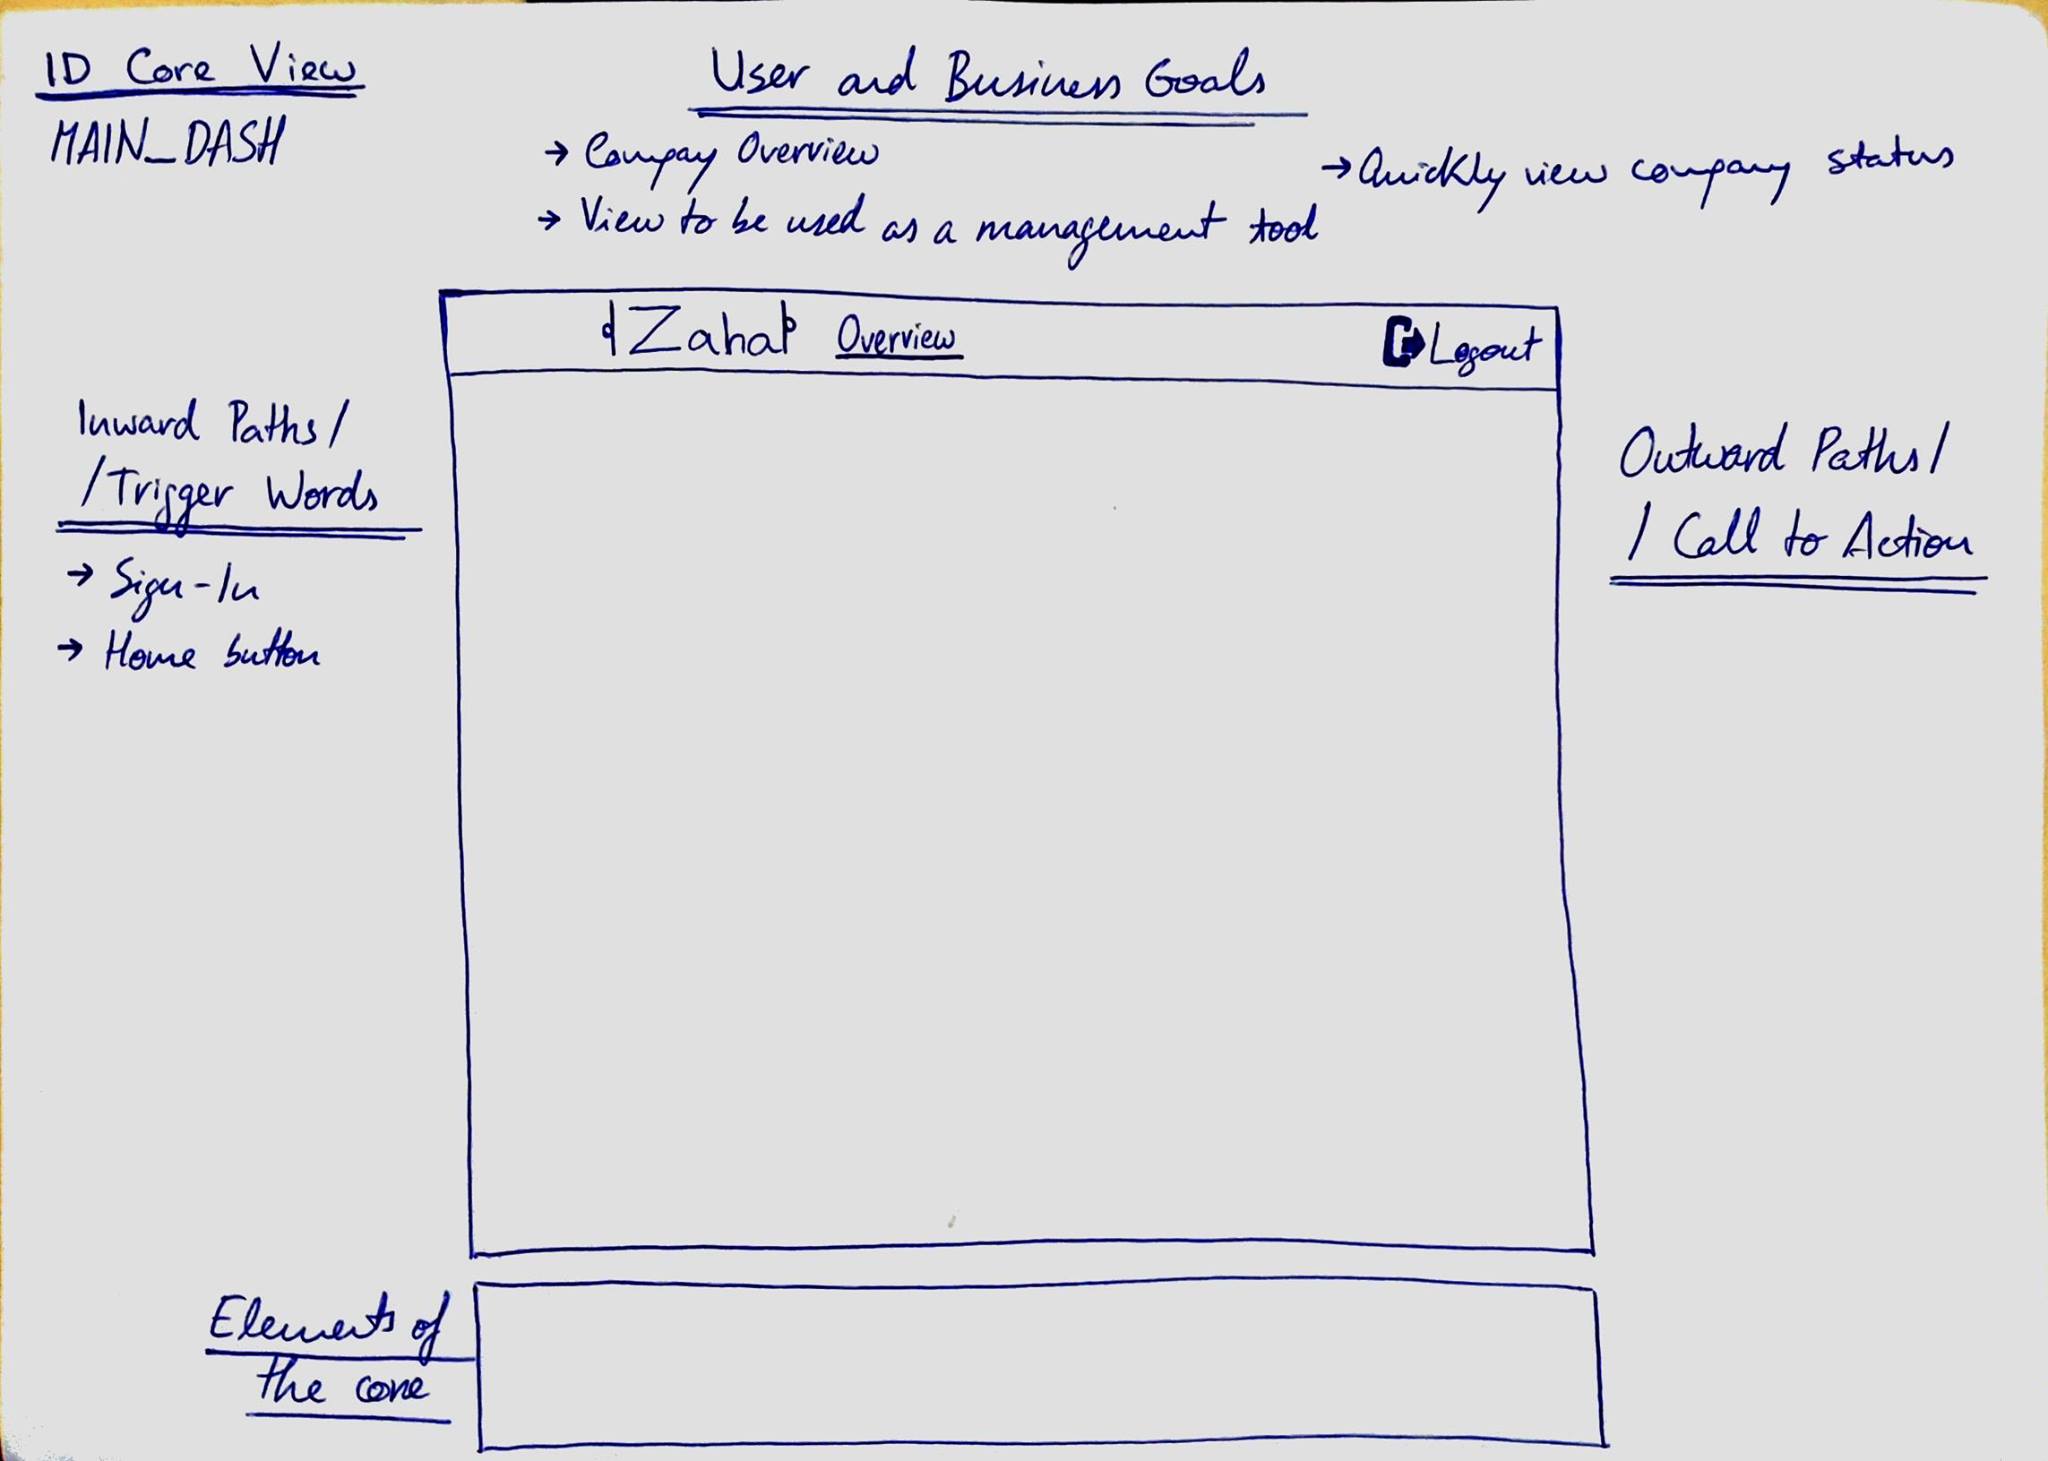 ID Core View
MAIN_DASH
User and Business Goals
→ Compay Overview
→ View to be used as a management tool
→ Quickly view company status
Zaha Overview
Logout
Inward Paths/
/Trigger Words
→ Sign-In
→ Home button
Outward Paths/
/ Call to Action
Elements of
the core